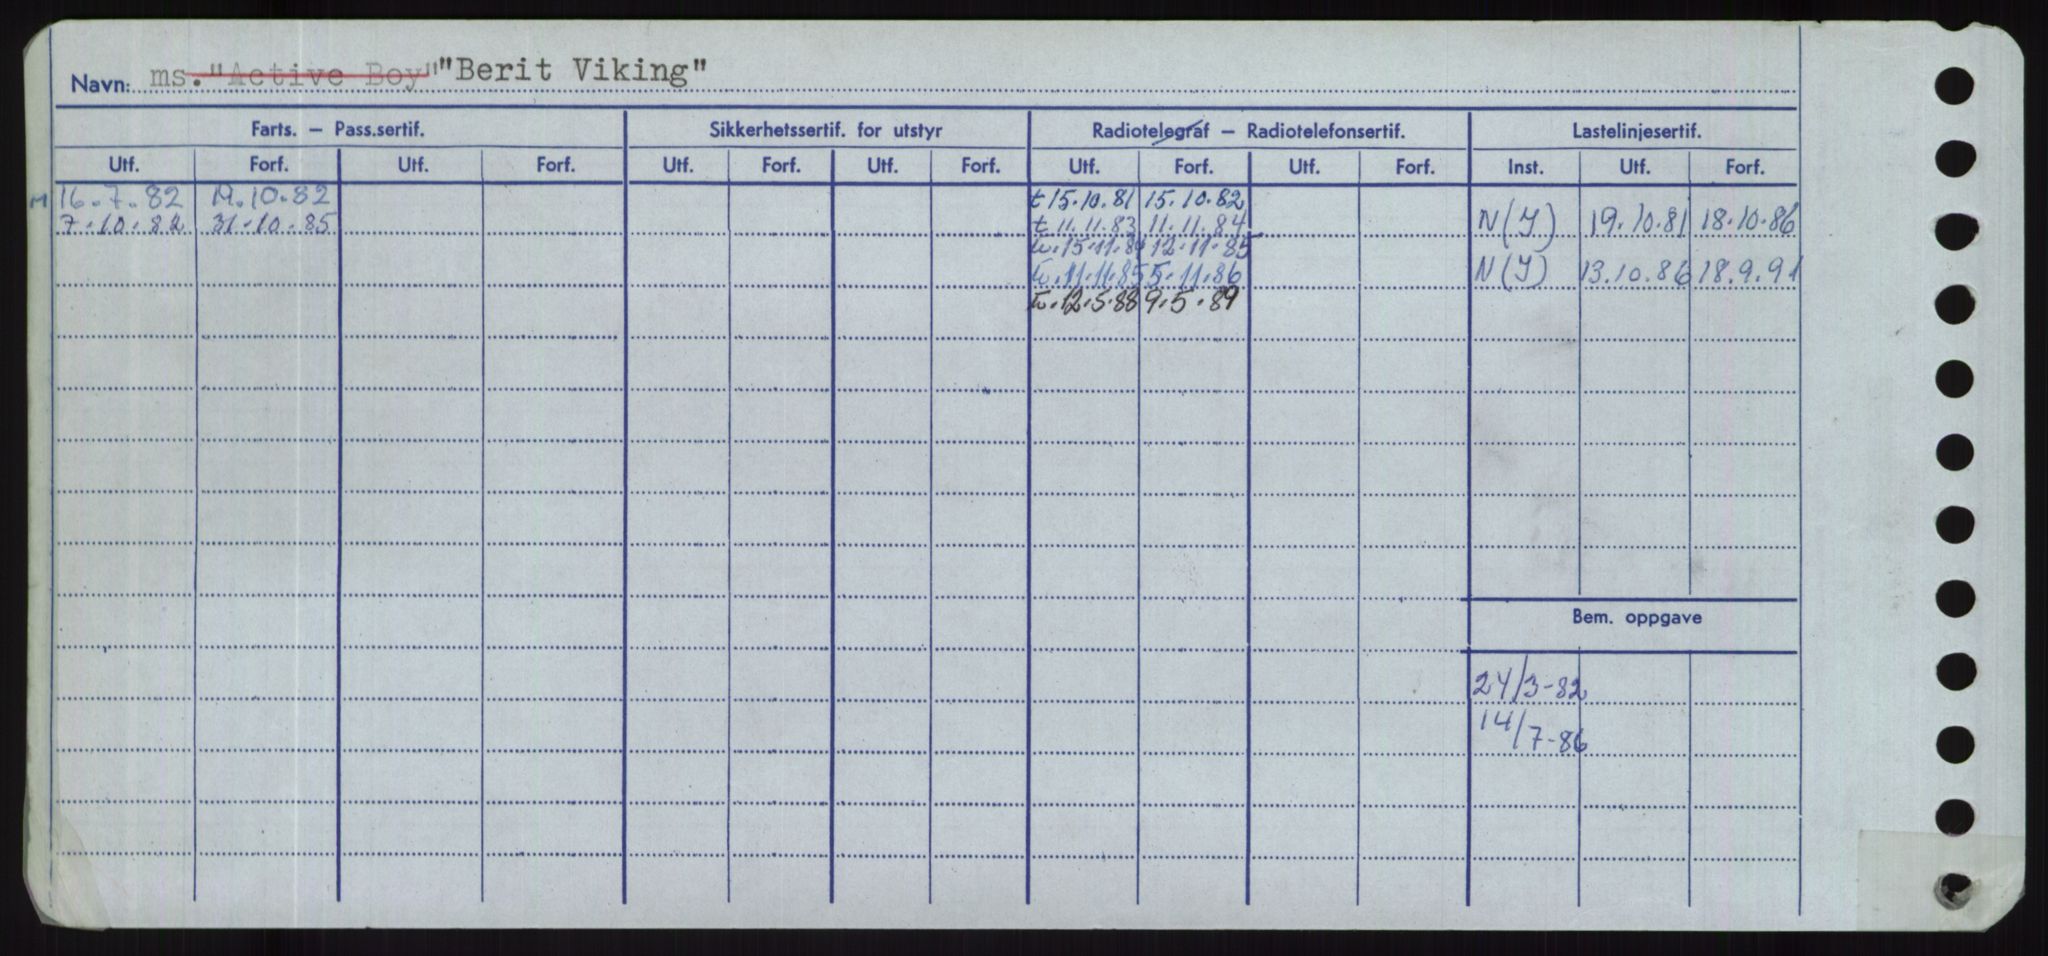 Navn: ms. "Active Boy" "Berit Viking"
Farts. — Pass.sertif. Sikkerhetssertif. for utstyr Radiotelegraf — Radiotelefonsertif. Lastelinjesertif.
Utf. Forf. Utf. Forf. Utf. Forf. Utf. Forf. Utf. Forf. Utf. Forf. Inst. Utf. Forf.
M 16.7.82 19.10.82 t 15.10.81 15.10.82
7.10.82 31.10.85 t 11.11.83 11.11.84 N(I) 19.10.81 18.10.86
15.11.84 12.11.85
11.11.85 5.11.86 N(I) 13.10.86 18.9.91
12.5.88 9.5.89
Bem. oppgave
24/3-82
14/7-86